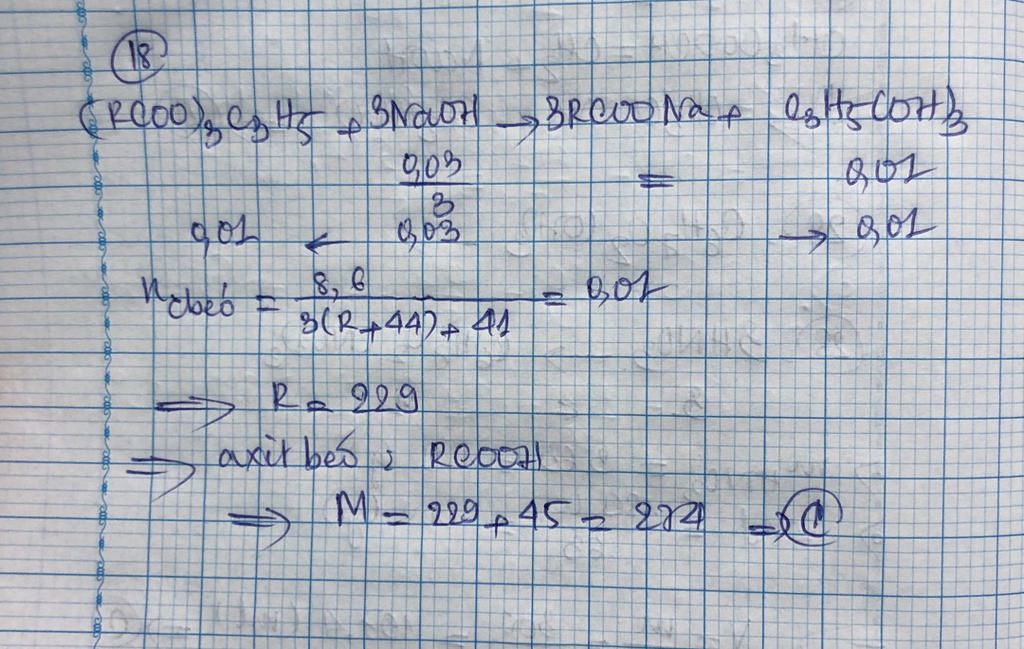 18
(RCOO)3C3H5 + 3NaOH → 3RCOONa + C3H5(OH)3
0,03/3 = 0,01
0,01 ← 0,03 → 0,01
n cbéo = 8,6 / 3(R+44) + 41 = 0,01
⇒ R = 229
⇒ axit béo : RCOOH
⇒ M = 229 + 45 = 274 ⇒